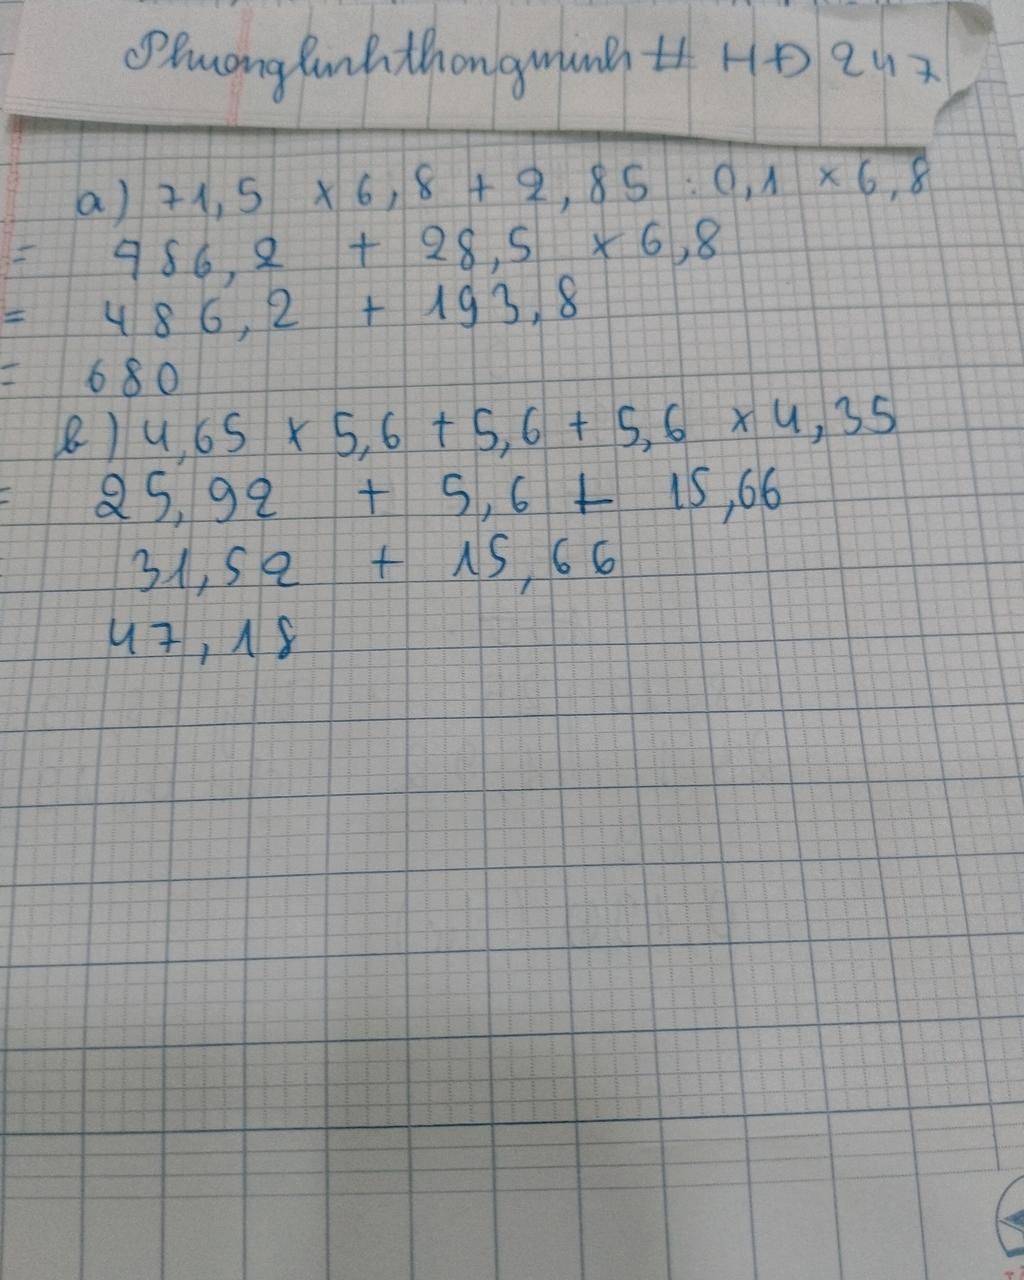 Phuonglinhthongminh # HĐ 247
a) 71,5 × 6,8 + 2,85 : 0,1 × 6,8
= 486,2 + 28,5 × 6,8
= 486,2 + 193,8
= 680
b) 4,65 × 5,6 + 5,6 + 5,6 × 4,35
= 25,92 + 5,6 + 15,66
31,52 + 15,66
47,18